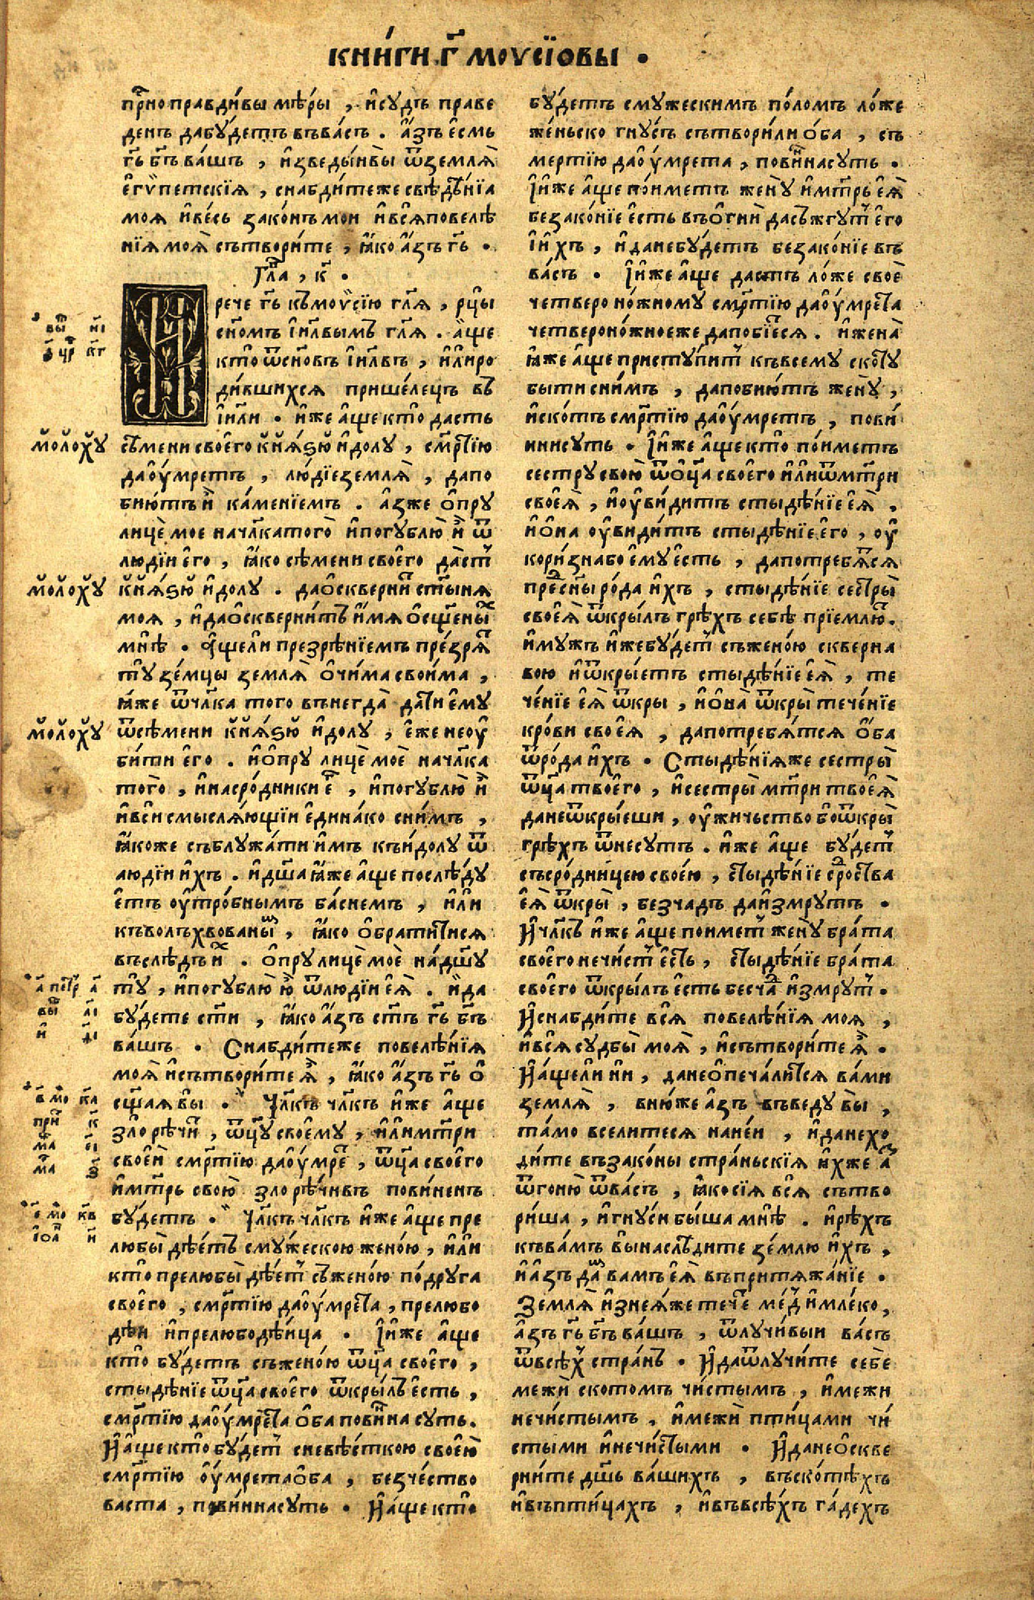 кни́ги г҃ моѵсїовы .
пр҇но правди́вы мѣ́ры , и҆сꙋдъ праве
денъ дабꙋ́детъ въва́съ . а҆́зъ є҆́смь
гь҃ бг҃ъ ва́шъ , и҆зведы́ивы ѿземлѧ̀
є҆гѵ́петскїѧ , снабди́теже свѣдѣ́нїа
моѧ̀ и҆ве́сь зако́нъ мои и҆всѧ̀повелѣ
нїѧ моѧ̀ сътвори́те , ꙗ҆́ко а҆́зъ гь҃ .
Гл҃а , к҃ .
И рече гь҃ къмоѵсїю гл҃ѧ , рцы̀
сн҃омъ і҆и҃лвымъ гл҃ѧ . а҆́ще
кто̀ ѿсн҃овъ і҆и҃лвъ , и҆лиро
ди́вшихсѧ прише́лецъ въ
і҆и҃ли . и҆́же а҆́ще кто̀ да́стъ
мо́лохꙋ
сѣ́мени своего̀ кн҃ѧ́ꙃю и҆́долꙋ , см҃ртїю
даꙋ҆́мретъ , лю́дїеземлѧ̀ , дапо
бию́тъ и҆̀ ка́менїемъ . а҆́зже ѻ҆прꙋ
лицѐ мое нач҃лкатого̀ и҆погꙋблю̀ и҆̀ ѿ
люді́и є҆го̀ , ꙗ҆́ко сѣ́мени своего̀ да́ст
мо́лохꙋ
кн҃ѧ́ꙃю и҆́долꙋ . даѻ҆скверни́т ст҃ы́нѧ
моѧ̀ , и҆даѻ҆скверни́тъ и҆́мѧ ѻ҆сщ҃ены́х
мнѣ̀ . а҆́щели презрѣ́нїемъ пре́зрѧт
тꙋзе́мцы землѧ̀ ѻ҆чи́ма свои́ма ,
ꙗ҆́же ѿч҃лка того̀ вънегда̀ да́ти є҆мꙋ̀
мо́лохꙋ
ѿсѣ́мени кн҃ѧ́ꙃю и҆́долꙋ , є҆́же неоу҆
би́ти є҆го̀ . и҆ѻ҆прꙋ̀ лицѐ моѐ нач҃лка
того̀ , и҆насро́дники є҆г , и҆погꙋблю̀ и҆х
и҆вси̑ смы́слѧщїи є҆дина́ко сни́мъ ,
ꙗ҆́коже съблꙋжа́ти и҆мъ къи҆́долꙋ ѿ
люді́и и҆́хъ . и҆дш҃а ꙗ҆́же а҆́ще послѣ́дꙋ
є҆тъ оу҆тро́бнымъ ба́снемъ , и҆лѝ
къволъхвованы́м , ꙗ҆́ко ѻ҆брати́тисѧ
въслѣдъ и҆х . ѻ҆прꙋ̀ лицѐ моѐ на́дш҃ꙋ
тꙋ̀ , и҆погꙋблю̀ ю҆̀ ѿлюді́и є҆ѧ̀ . и҆да
бꙋ́дете ст҃и , ꙗ҆́ко а҆́зъ ст҃ъ гь҃ бг҃ъ
ва́шъ . Снабди́теже повелѣ́нїѧ
моѧ̀ и҆сътвори́те ѧ҆̀ , ꙗ҆́ко а҆́зъ гь҃ ѻ҆
сщ҃аѧвы . Ч҃лкъ ч҃лкъ и҆́же а҆́ще
зло̀ рѣчи́т , ѿц҃ꙋ своемꙋ̀ , и҆лимт҃ри
свое́й см҃ртїю даꙋ҆́мре , ѿц҃а своего̀
и҆мт҃рь свою̀ зло рѣ́чивъ пови́ненъ
бꙋ́детъ . Ч҃лкъ ч҃лкъ и҆́же а҆́ще пре
любы̀ дѣ́етъ смꙋ́жескою жено́ю , и҆лѝ
кто̀ прелюбы̀ дѣ́ет съжено́ю по́дрꙋга
своего̀ , см҃ртїю даꙋ҆́мрета , прелюбо
дѣ́и и҆прелюбодѣ́ица . І҆и҆́же а҆́ще
кто̀ бꙋ́детъ съжено́ю ѿц҃а своего̀ ,
стыдѣ́нїе ѿц҃а своего̀ ѿкры́лъ є҆́сть ,
см҃ртїю даꙋ҆́мрета ѻ҆́ба пови́нна сꙋть .
И҆а҆́ще кто̀ бꙋ́дет сневѣ́сткою свое́ю
см҃ртїю оу҆́мретаѻ҆́ба , безче́ство
васта , пови́ннасꙋть . И҆а҆́ще кто̀
бꙋ́детъ смꙋ́жескимъ по́ломъ ло́же
же́ньско гнꙋ́съ сътвори́ли ѻ҆́ба , съ
ме́ртїю даꙋ҆́мрета , пови́ннасꙋть .
І҆и҆́же а҆́ще по́иметъ женꙋ̀ и҆мт҃рь є҆ѧ̀
безако́нїе є҆сть въѻ҆гни̑ дасъжгꙋ́т є҆го̀
і҆и҆́хъ , и҆данебꙋ́детъ безако́нїе въ
ва́съ . І҆и҆́же а҆́ще да́стъ ло́же своѐ
четвероно́жномꙋ см҃ртїю даꙋ҆́мрета
четвероно́жноеже дапобїе́сѧ . и҆жена̀
ꙗ҆́же а҆́ще пристꙋ́пит къвсемꙋ ското́у
бы́ти сни́мъ , дапобию́тъ женꙋ̀ ,
и҆ско́тъ см҃ртїю даꙋ҆́мретъ , пови́
ннисꙋть . І҆и҆́же а҆́ще кто̀ по́иметъ
сестрꙋ свою̀ ѿѻ҆ц҃а своего̀ и҆лиѿмт҃ри
своеѧ̀ , и҆оу҆ви́дитъ стыдѣ́нїе є҆ѧ̀ ,
и҆ѻ҆на̀ оу҆ви́дитъ стыдѣ́нїе є҆го̀ , оу҆
кори́знабо є҆мꙋ̀ є҆сть , дапотребѧ́тсѧ
пре́дсн҃ы ро́да и҆́хъ , стыдѣ́нїе сестры̀
своеѧ̀ ѿкры́лъ грѣ́хъ себѣ̀ прїе́млют.
и҆мꙋжъ и҆́жебꙋ́дет съжено́ю скверна
вою и҆ѿкры́етъ стыдѣ́нїе є҆ѧ̀ , те
че́нїе є҆ѧ̀ ѿкры , и҆ѻ҆на̀ ѿкры̀ тече́нїе
кро́ви своеѧ̀ , дапотребѧ́тсѧ ѻ҆́ба
ѿро́да и҆́хъ . Стыдѣ́нїѧже сестры̀
ѿц҃а твоего̀ , и҆сестры мт҃ри твоеѧ̀
данеѿкры́еши , оу҆жи́чьство боѿкры̀
грѣ́хъ ѿнесꙋтъ . и҆́же а҆́ще бꙋ́дет
съсро́дницею своею , стыдѣ́нїе сро́дства
є҆ѧ̀ ѿкры̀ , безча́дъ даи҆́змрꙋтъ .
И҆ч҃лкъ и҆́же а҆́ще поимет женꙋ̀ бра́та
своего̀ нечи́ст є҆́сть , стыдѣ́нїе бра́та
своего̀ ѿкры́лъ є҆сть бесча́д и҆́змрꙋт .
И҆снабди́те всѧ̀ повелѣ́нїѧ моѧ̀ ,
и҆всѧ сꙋдбы̀ моѧ̀ , и҆сътвори́те ѧ҆̀ .
И҆а҆́щели ни̑ , данеѻ҆печа́литсѧ ва́ми
землѧ̀ , вню́же а҆́зъ въведꙋ вы ,
та́мо всели́тесѧ нане́и , и҆данехо
ди́те въвзако́ны стра́ньскїѧ и҆́хже а҆́з
ѿгоню̀ ѿва́съ , ꙗ҆́косїѧ всѧ̀ сътво
ри́ша , и҆гнꙋ́си бы́ша мнѣ̀ . и҆рѣ́хъ
къва́мъ вы̀наслѣ́дите зе́млю и҆́хъ ,
и҆а҆́зъ да́м вамъ є҆ѧ̀ въпритѧжа́нїе .
Землѧ̀ и҆знеѧ́же тече́т ме́д и҆мле́ко ,
а҆́зъ гь҃ бг҃ъ ва́шъ , ѿлꙋчи́выи ва́съ
ѿвсѣ́х стра́нъ . И҆даѿлꙋчи́те себѐ
межѝ ското́мъ чи́стымъ , и҆межи
нечи́стымъ , и҆межѝ пти́цами чи́
стыми и҆нечи́стыми . И҆данеѻ҆скве
рни́те дш҃ь ва́шихъ , въско́тѣхъ
и҆въпти́цахъ , и҆въвсѣ́хъ га́дехъ